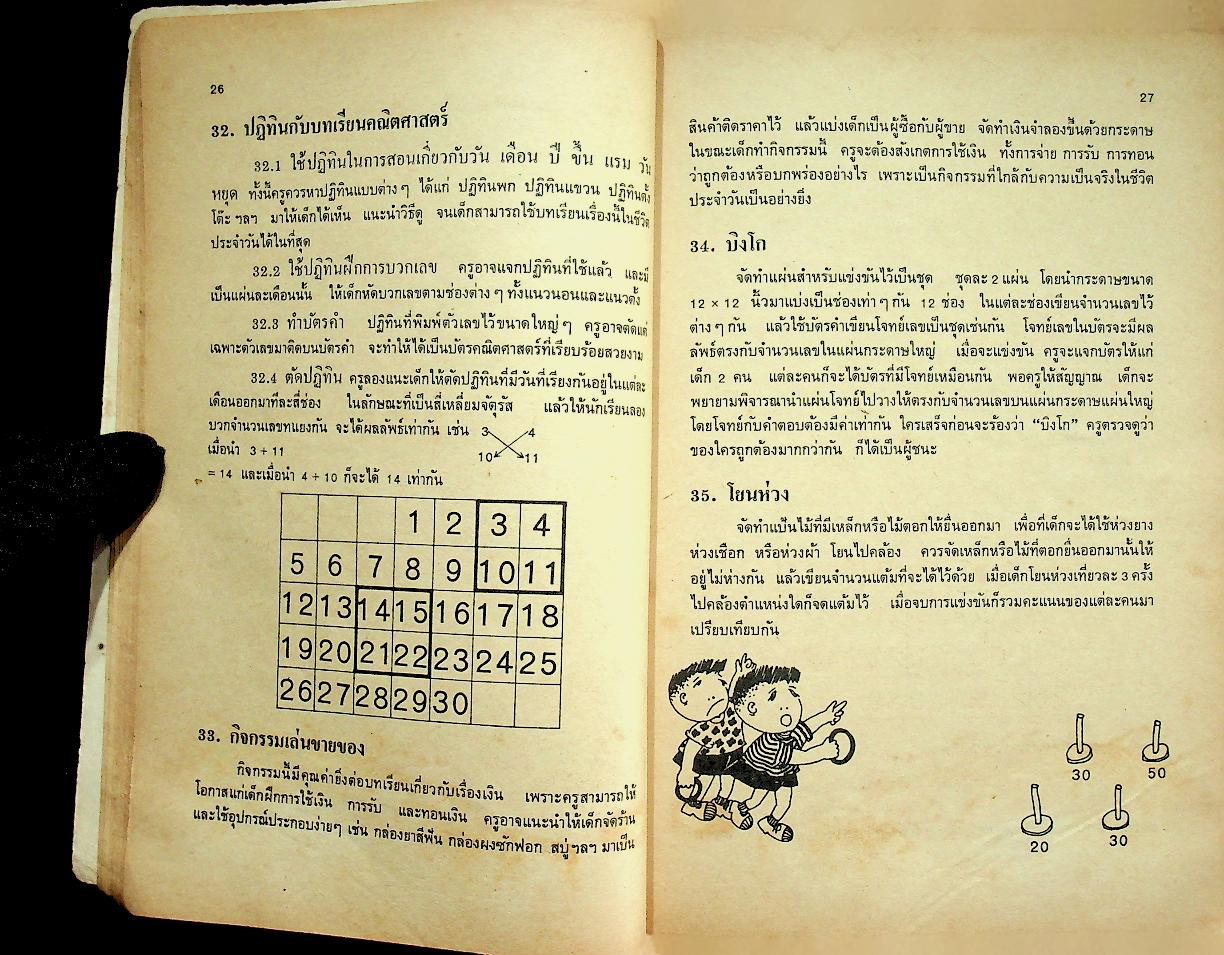 26
32. ปฏิทินกับบทเรียนคณิตศาสตร์
32.1 ใช้ปฏิทินในการสอนเกี่ยวกับวัน เดือน ปี ขึ้น แรม วัน
หยุด ทั้งนี้ครูควรหาปฏิทินแบบต่าง ๆ ได้แก่ ปฏิทินพก ปฏิทินแขวน ปฏิทินตั้ง
โต๊ะ ฯลฯ มาให้เด็กได้เห็น แนะนำวิธีดู จนเด็กสามารถใช้บทเรียนเรื่องนี้ในชีวิต
ประจำวันได้ในที่สุด
32.2 ใช้ปฏิทินฝึกการบวกเลข ครูอาจแจกปฏิทินที่ใช้แล้ว และมี
เป็นแผ่นละเดือนนั้น ให้เด็กหัดบวกเลขตามช่องต่าง ๆ ทั้งแนวนอนและแนวตั้ง
32.3 ทำบัตรคำ ปฏิทินที่พิมพ์ตัวเลขไว้ขนาดใหญ่ ๆ ครูอาจตัดแต่
เฉพาะตัวเลขมาติดบนบัตรคำ จะทำให้ได้เป็นบัตรคณิตศาสตร์ที่เรียบร้อยสวยงาม
32.4 ตัดปฏิทิน ครูลองแนะเด็กให้ตัดปฏิทินที่มีวันที่เรียงกันอยู่ในแต่ละ
เดือนออกมาทีละสี่ช่อง ในลักษณะที่เป็นสี่เหลี่ยมจัตุรัส แล้วให้นักเรียนลอง
บวกจำนวนเลขทแยงกัน จะได้ผลลัพธ์เท่ากัน เช่น 3 4
เมื่อนำ 3 + 11 10 11
= 14 และเมื่อนำ 4 + 10 ก็จะได้ 14 เท่ากัน
1 2 3 4
5 6 7 8 9 10 11
12 13 14 15 16 17 18
19 20 21 22 23 24 25
26 27 28 29 30
33. กิจกรรมเล่นขายของ
กิจกรรมนี้มีคุณค่ายิ่งต่อบทเรียนเกี่ยวกับเรื่องเงิน เพราะครูสามารถให้
โอกาสแก่เด็กฝึกการใช้เงิน การรับ และทอนเงิน ครูอาจแนะนำให้เด็กจัดร้าน
และใช้อุปกรณ์ประกอบง่ายๆ เช่น กล่องยาสีฟัน กล่องผงซักฟอก สบู่ ฯลฯ มาเป็น
27
สินค้าติดราคาไว้ แล้วแบ่งเด็กเป็นผู้ซื้อกับผู้ขาย จัดทำเงินจำลองขึ้นด้วยกระดาษ
ในขณะเด็กทำกิจกรรมนี้ ครูจะต้องสังเกตการใช้เงิน ทั้งการจ่าย การรับ การทอน
ว่าถูกต้องหรือบกพร่องอย่างไร เพราะเป็นกิจกรรมที่ใกล้กับความเป็นจริงในชีวิต
ประจำวันเป็นอย่างยิ่ง
34. บิงโก
จัดทำแผ่นสำหรับแข่งขันไว้เป็นชุด ชุดละ 2 แผ่น โดยนำกระดาษขนาด
12 × 12 นิ้วมาแบ่งเป็นช่องเท่า ๆ กัน 12 ช่อง ในแต่ละช่องเขียนจำนวนเลขไว้
ต่าง ๆ กัน แล้วใช้บัตรคำเขียนโจทย์เลขเป็นชุดเช่นกัน โจทย์เลขในบัตรจะมีผล
ลัพธ์ตรงกับจำนวนเลขในแผ่นกระดาษใหญ่ เมื่อจะแข่งขัน ครูจะแจกบัตรให้แก่
เด็ก 2 คน แต่ละคนก็จะได้บัตรที่มีโจทย์เหมือนกัน พอครูให้สัญญาณ เด็กจะ
พยายามพิจารณานำแผ่นโจทย์ไปวางให้ตรงกับจำนวนเลขบนแผ่นกระดาษแผ่นใหญ่
โดยโจทย์กับคำตอบต้องมีค่าเท่ากัน ใครเสร็จก่อนจะร้องว่า “บิงโก” ครูตรวจดูว่า
ของใครถูกต้องมากกว่ากัน ก็ได้เป็นผู้ชนะ
35. โยนห่วง
จัดทำแป้นไม้ที่มีเหล็กหรือไม้ตอกให้ยื่นออกมา เพื่อที่เด็กจะได้ใช้ห่วงยาง
ห่วงเชือก หรือห่วงผ้า โยนไปคล้อง ควรจัดเหล็กหรือไม้ที่ตอกยื่นออกมานั้นให้
อยู่ไม่ห่างกัน แล้วเขียนจำนวนแต้มที่จะได้ไว้ด้วย เมื่อเด็กโยนห่วงเที่ยวละ 3 ครั้ง
ไปคล้องตำแหน่งใดก็จดแต้มไว้ เมื่อจบการแข่งขันก็รวมคะแนนของแต่ละคนมา
เปรียบเทียบกัน
30 50
20 30